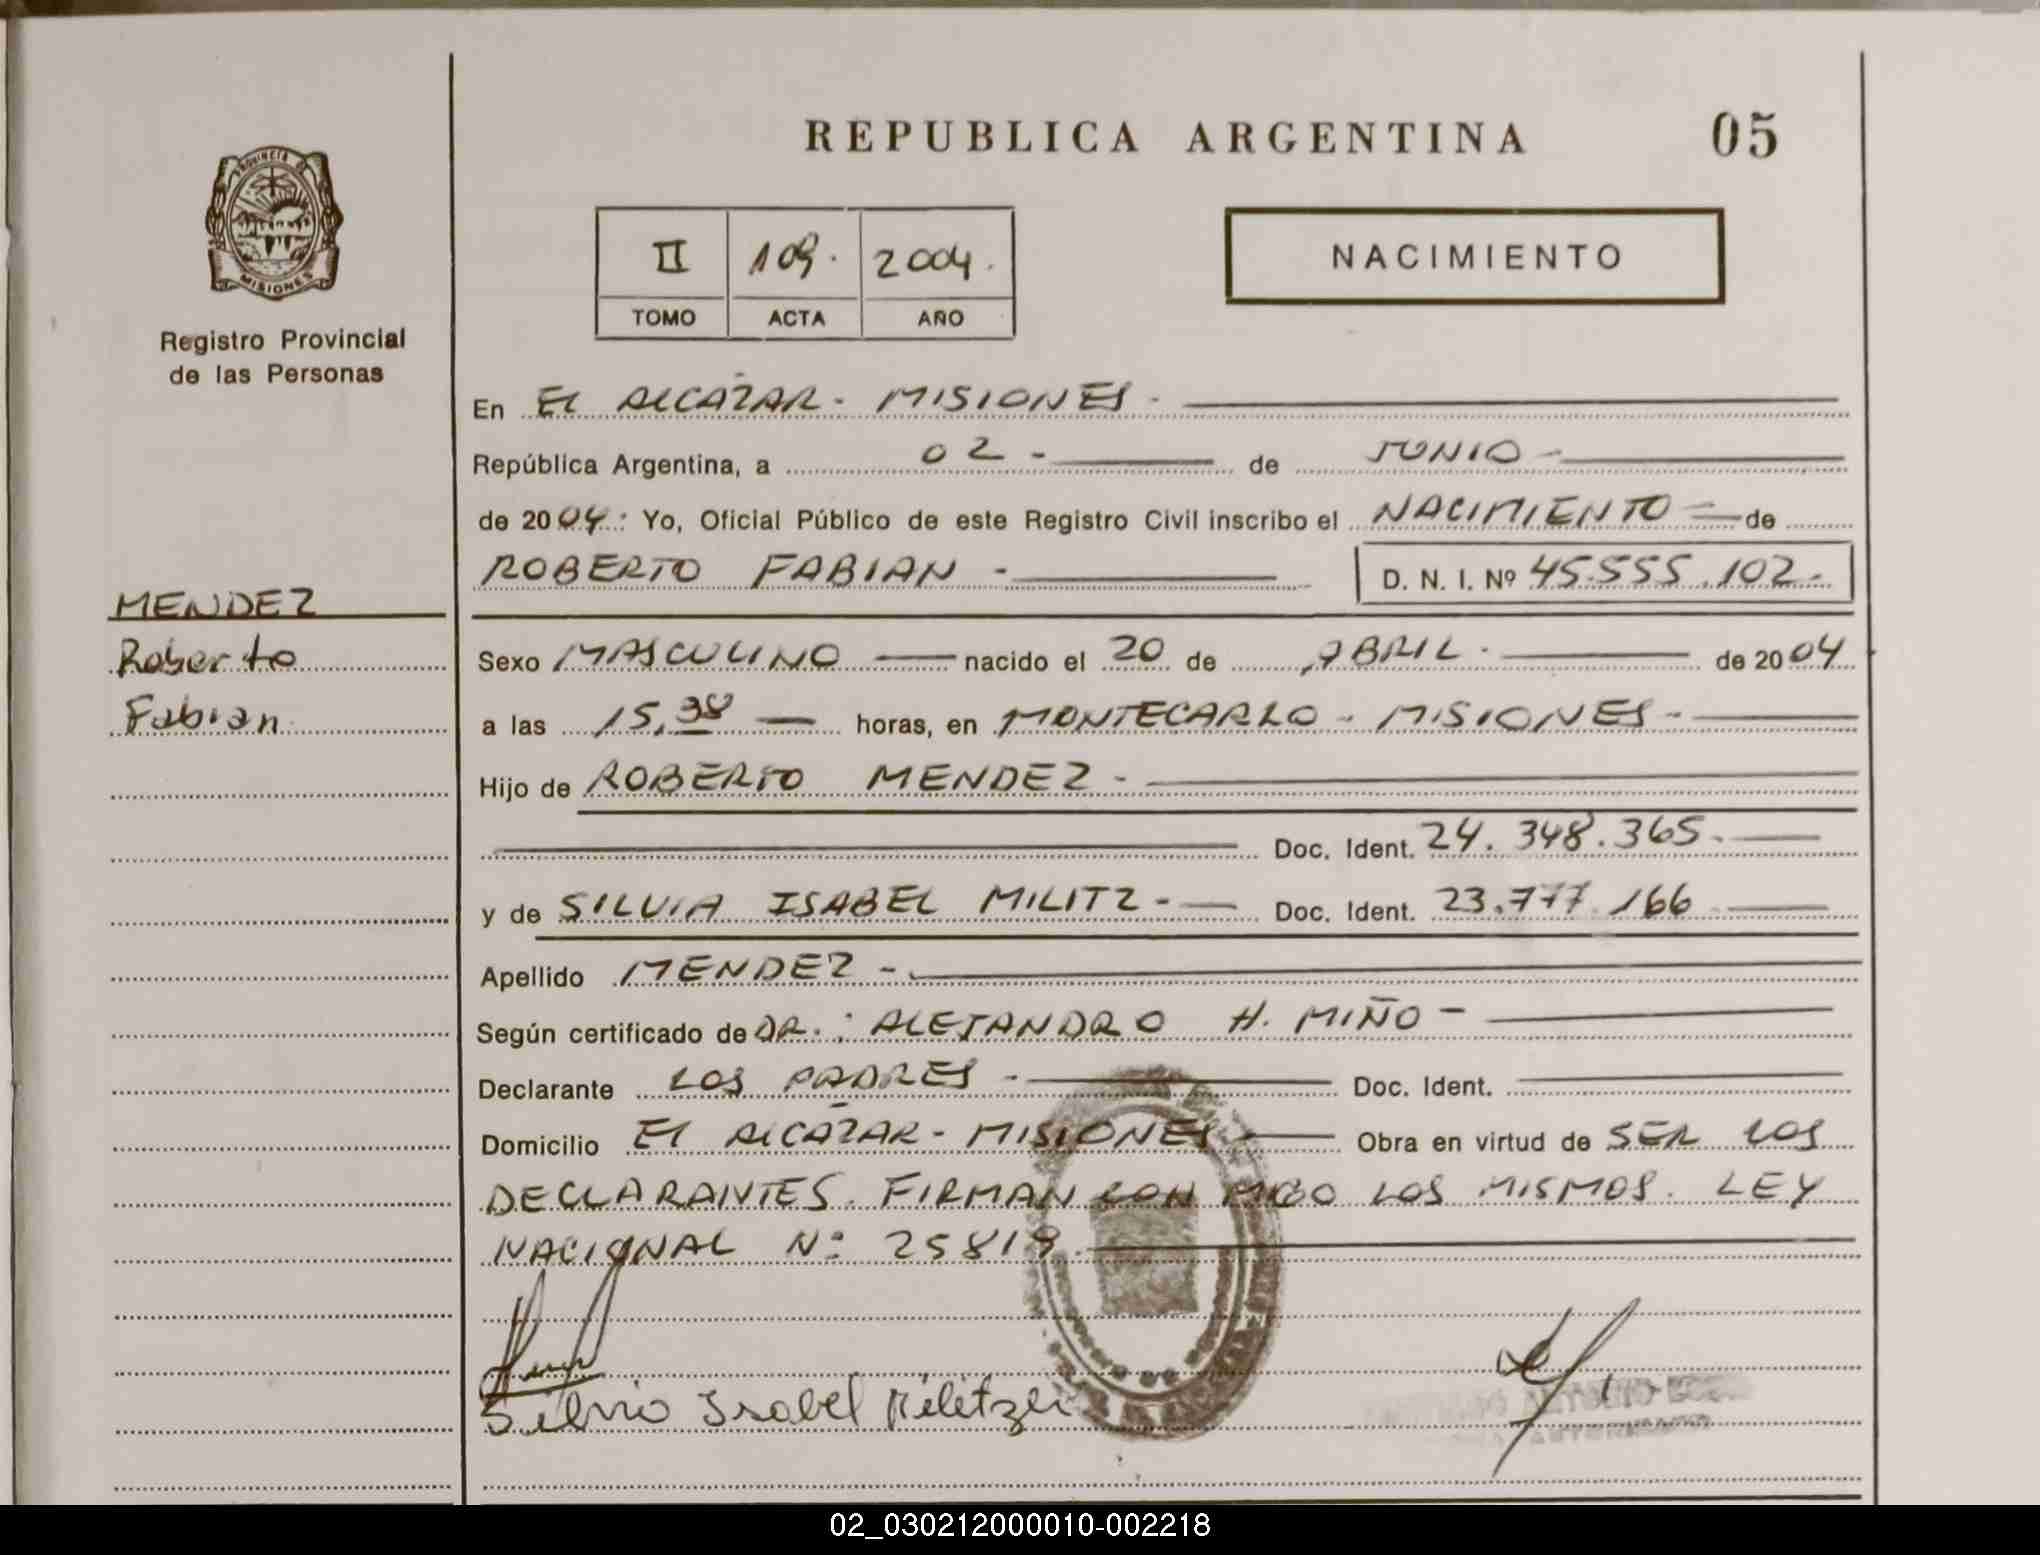 REPUBLICA ARGENTINA 05
PROVINCIA DE
MISIONES
Registro Provincial
de las Personas
II 109. 2004.
TOMO ACTA AÑO
NACIMIENTO
En EL ALCAZAR - MISIONES -
República Argentina, a 02 - de JUNIO -
de 2004: Yo, Oficial Público de este Registro Civil inscribo el NACIMIENTO - de
ROBERTO FABIAN - D. N. I. Nº 45.555.102 -
MENDEZ
Roberto
Fabian
Sexo MASCULINO nacido el 20 de ABRIL - de 2004
a las 15,38 horas, en MONTECARLO - MISIONES -
Hijo de ROBERTO MENDEZ -
Doc. Ident. 24.348.365 -
y de SILVIA ISABEL MILITZ - Doc. Ident. 23.777.166
Apellido MENDEZ -
Según certificado de DR.: ALEJANDRO H. MIÑO -
Declarante LOS PADRES - Doc. Ident.
Domicilio El ALCAZAR - MISIONES Obra en virtud de SER LOS
DECLARANTES. FIRMAN CON MIGO LOS MISMOS. LEY
NACIONAL Nº 25819.
Silvia Isabel
02_030212000010-002218